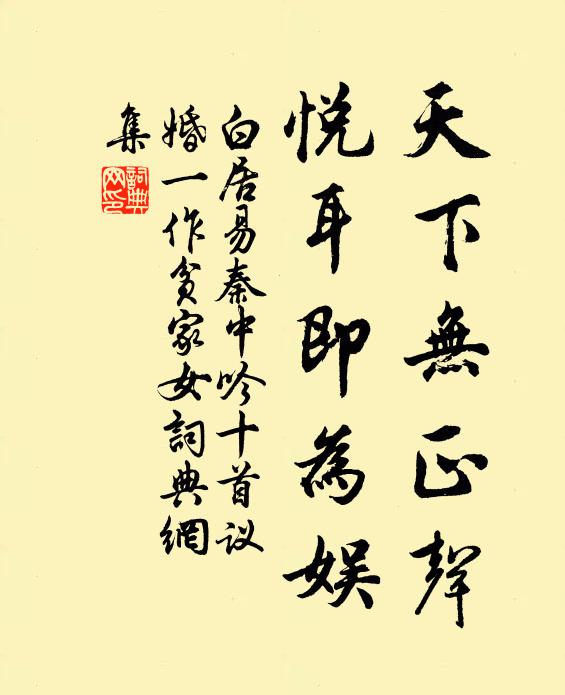 天下無正聲
悅耳即為娛
白居易秦中吟十首议
婚一作貧家女詞典網
集
詞典
网印